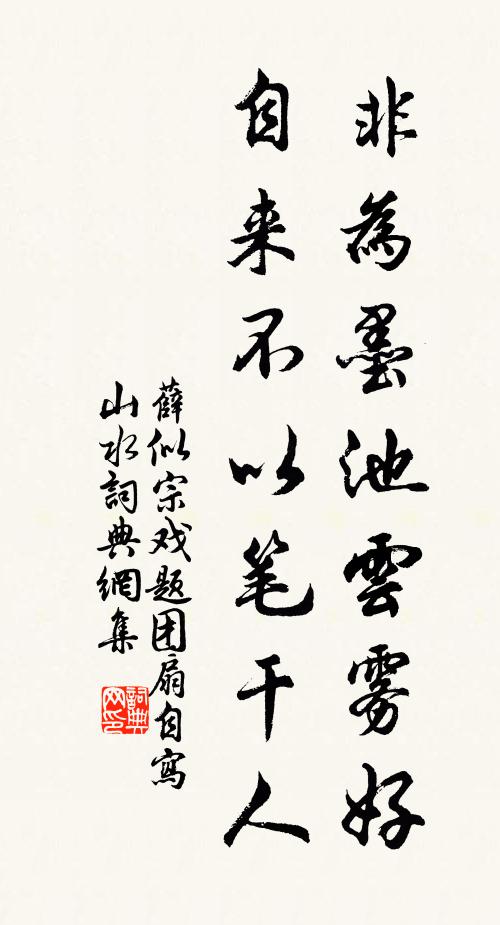 非為墨池雲雾好
自来不以笔干人
薛似宗戏题团扇自寫
山水詞典網集
詞典网印